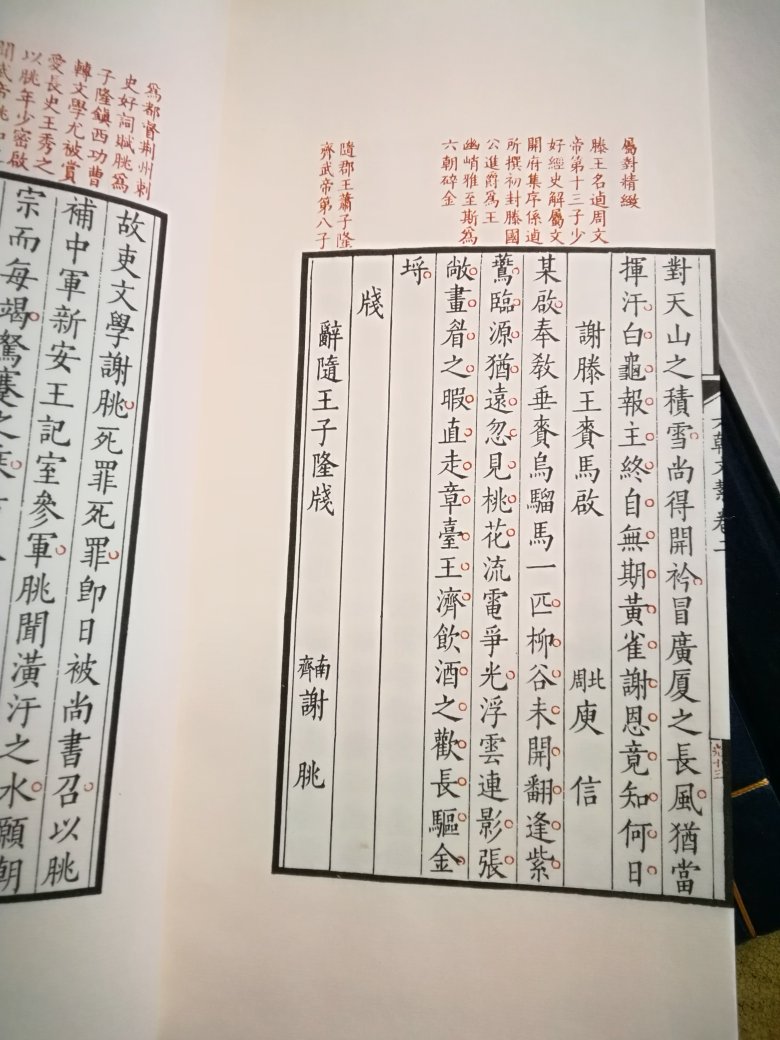 屬對精緻
滕王名逌周文
帝第十三子少
好經史解屬文
開府集序係逌
所撰初封滕國
公進爵爲王
幽峭雅至斯爲
六朝碎金
對天山之積雪尚得開衿冒廣厦之長風猶當
揮汗白龜報主終自無期黃雀謝恩竟知何日
謝滕王賚馬啟 北周 庾信
某啟奉敎垂賚烏騮馬一匹柳谷未開翻逢紫
鷰臨源猶遠忽見桃花流電爭光浮雲連影張
敞畫眉之暇直走章臺王濟飲酒之歡長驅金
埒
牋
隨郡王蕭子隆
齊武帝第八子
辭隨王子隆牋 南齊 謝朓
爲都督荆州刺
史好詞賦朓爲
子隆鎮西功曹
轉文學尤被賞
愛長史王秀之
以朓年少密啟
故吏文學謝朓死罪死罪即日被尚書召以朓
補中軍新安王記室參軍朓聞潢汙之水願朝
宗而每竭駑蹇之